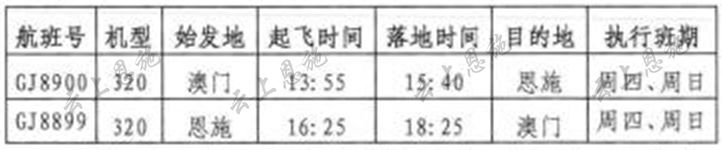 航班号 机型 始发地 起飞时间 落地时间 目的地 执行班期
GJ8900 320 澳门 13:55 15:40 恩施 周四、周日
GJ8899 320 恩施 16:25 18:25 澳门 周四、周日
云上恩施 云上恩施 云上恩施 云上恩施